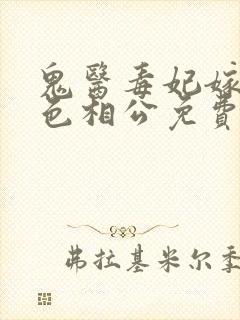 鬼醫毒妃嫁
色相公免費
弗拉基米尔季